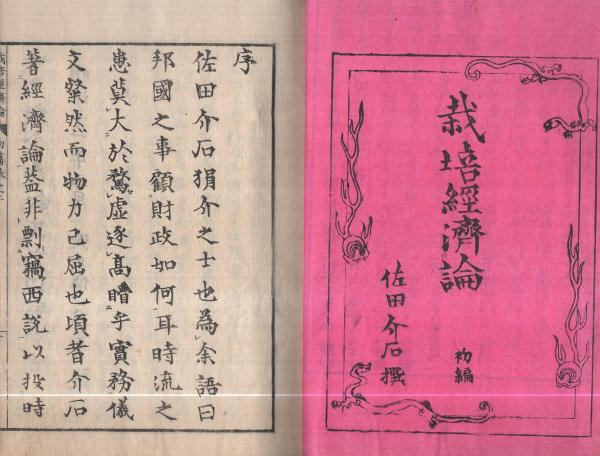 栽培經濟論
初編
佐田介石撰
序
佐田介石狷介之士也為余語曰
邦國之事顧財政如何耳時流之
患莫大於騖虛逐高瞶乎實務儀
文粲然而物力已屈也頃者介石
著經濟論蓋非剽竊西說以投時